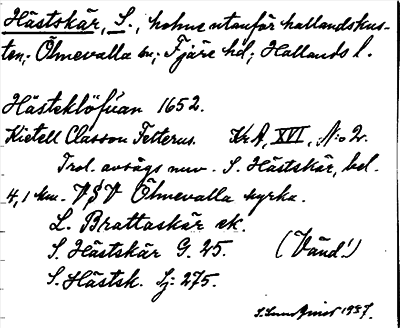 Hästskär, S., holme utanför hallandskus-
ten, Ölmevalla sn, Fjäre hd, Hallands l.
Hästeklöfúan 1652.
Kietell Classon Felterus. KrA, XVI, N:o 2.
Trol. avsågs nuv. S. Hästskär, bel.
4,1 km. VSV Ölmevalla kyrka.
L. Brattaskär ek.
S. Hästskär G. 25. (Vänd!)
S. Hästsk. Sj: 275.
1937.